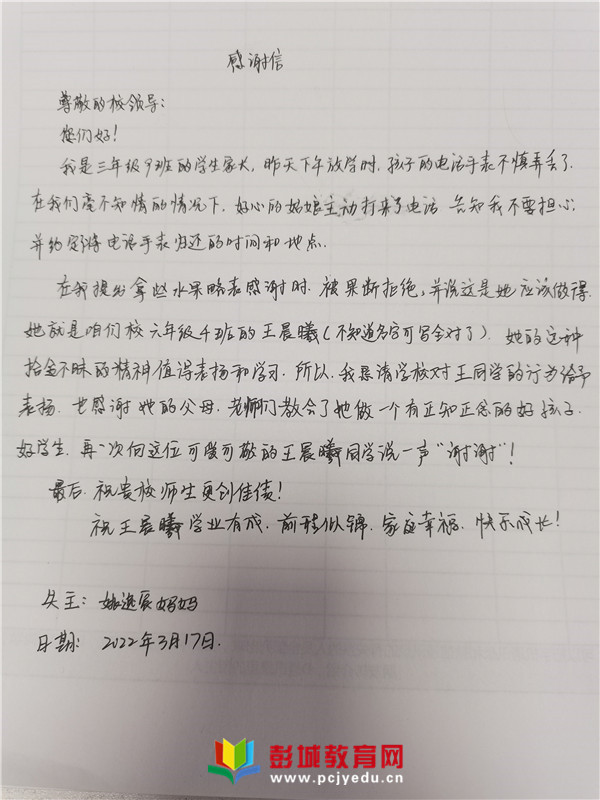 感谢信
尊敬的校领导:
您们好!
我是三年级9班的学生家长,昨天下午放学时,孩子的电话手表不慎弄丢了.
在我们毫不知情的情况下,好心的姑娘主动打来了电话 告知我不要担心
并约定将电话手表归还的时间和地点.
在我提出拿些水果略表感谢时.被果断拒绝,并说这是她应该做得.
她就是咱们校六年级4班的王晨曦(不知道名字可写全对了).她的这种
拾金不昧的精神值得表扬和学习.所以,我恳请学校对王同学的行为给予
表扬.也感谢她的父母.老师们教会了她做一个有正知正念的好孩子.
好学生.再一次向这位可爱可敬的王晨曦同学说一声“谢谢”!
最后.祝贵校师生更创佳绩!
祝王晨曦学业有成.前程似锦.家庭幸福.快乐成长!
失主: 逸辰妈妈
日期: 2022年3月17日.
彭城教育网
www.pcjyedu.cn